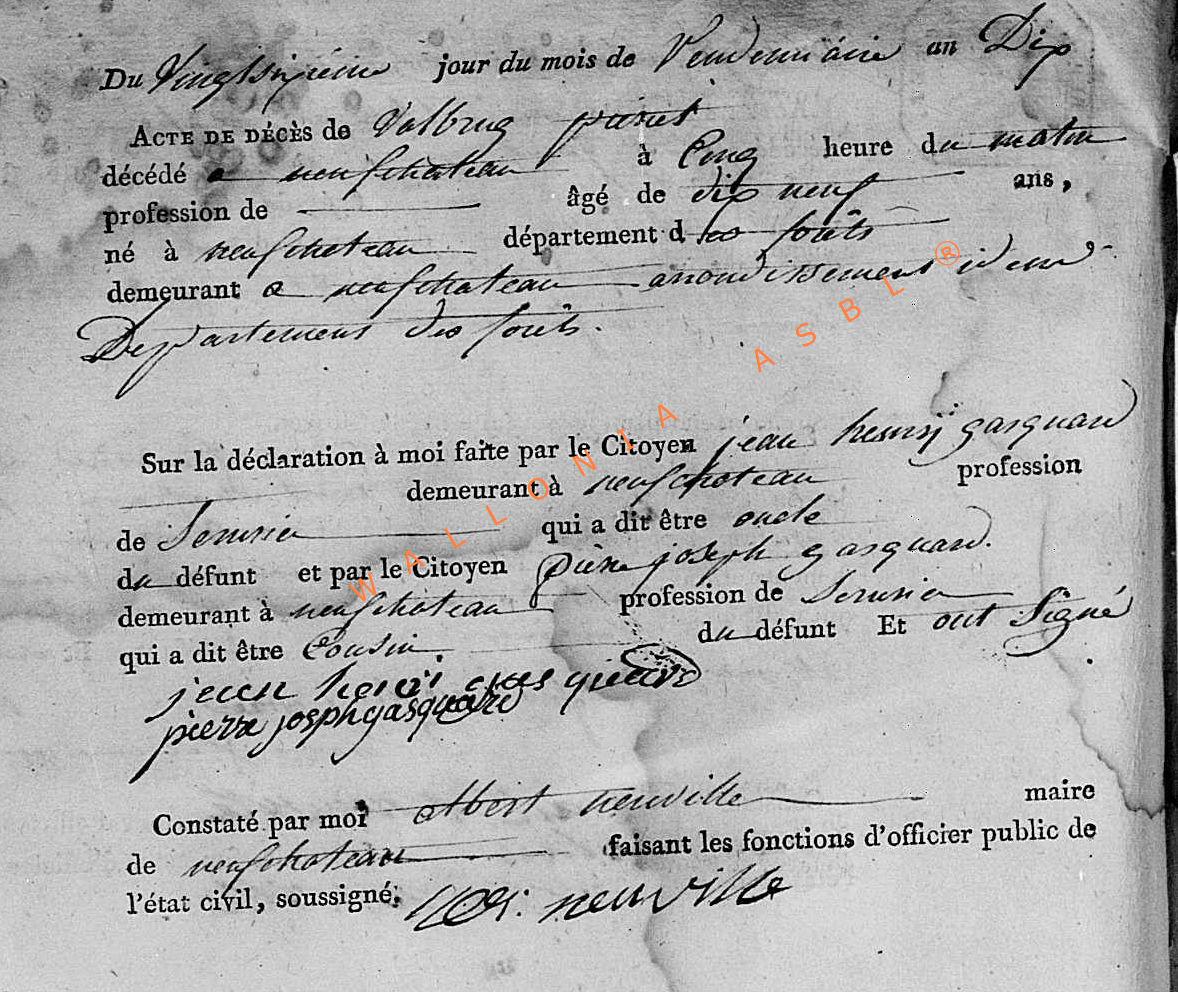 Du Vingtsixieme jour du mois de Vendemiaire an Dix
ACTE DE DÉCÈS de Valbrug
décédé a neufchateau à Cinq heure du matin
profession de âgé de dix neuf ans,
né à neufchateau département des forêts
demeurant a neufchateau arrondissement idem
Departement des forêts.
Sur la déclaration à moi faite par le Citoyen jean henrÿ gasquard
demeurant à neufchateau profession
de Serurier qui a dit être oncle
du défunt et par le Citoyen pierre joseph gasquard.
demeurant à neufchateau profession de Serurier
qui a dit être Cousin. du défunt Et ont Signé
jean henri
pierre josph gasquard
Constaté par moi albert neuville maire
de neufchateau faisant les fonctions d'officier public de
l'état civil, soussigné. neuville
WALLONIA ASBL ®